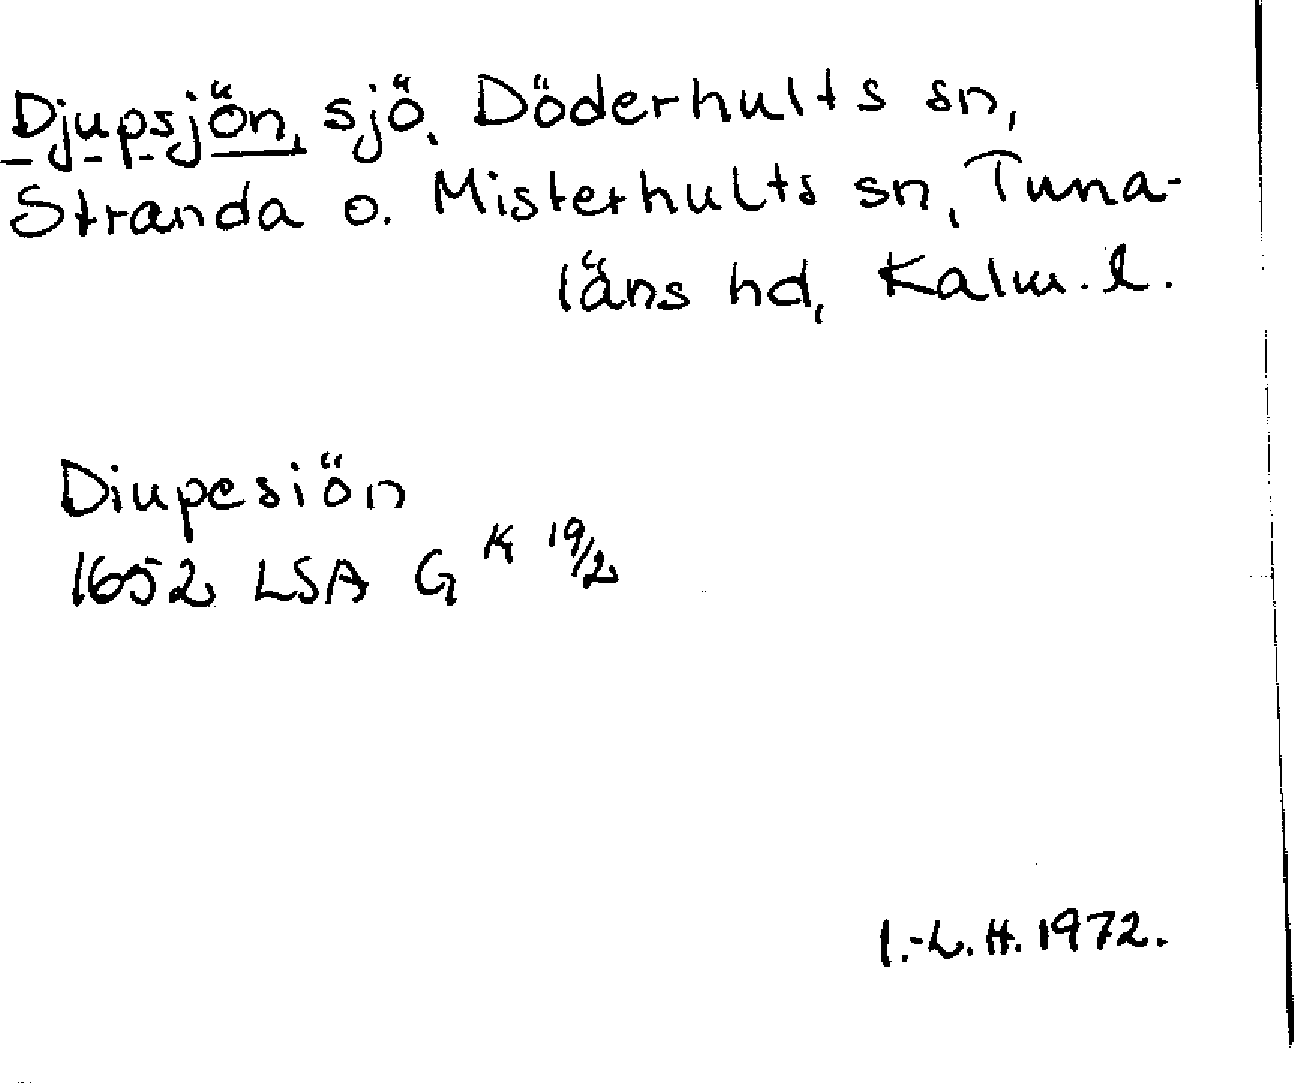 Djupsjön, sjö, Döderhults sn,
Stranda o. Misterhults sn, Tuna-
läns hd, Kalm. l.
Diupesiön
1652 LSA G K 19/2
I.-L. H. 1972.